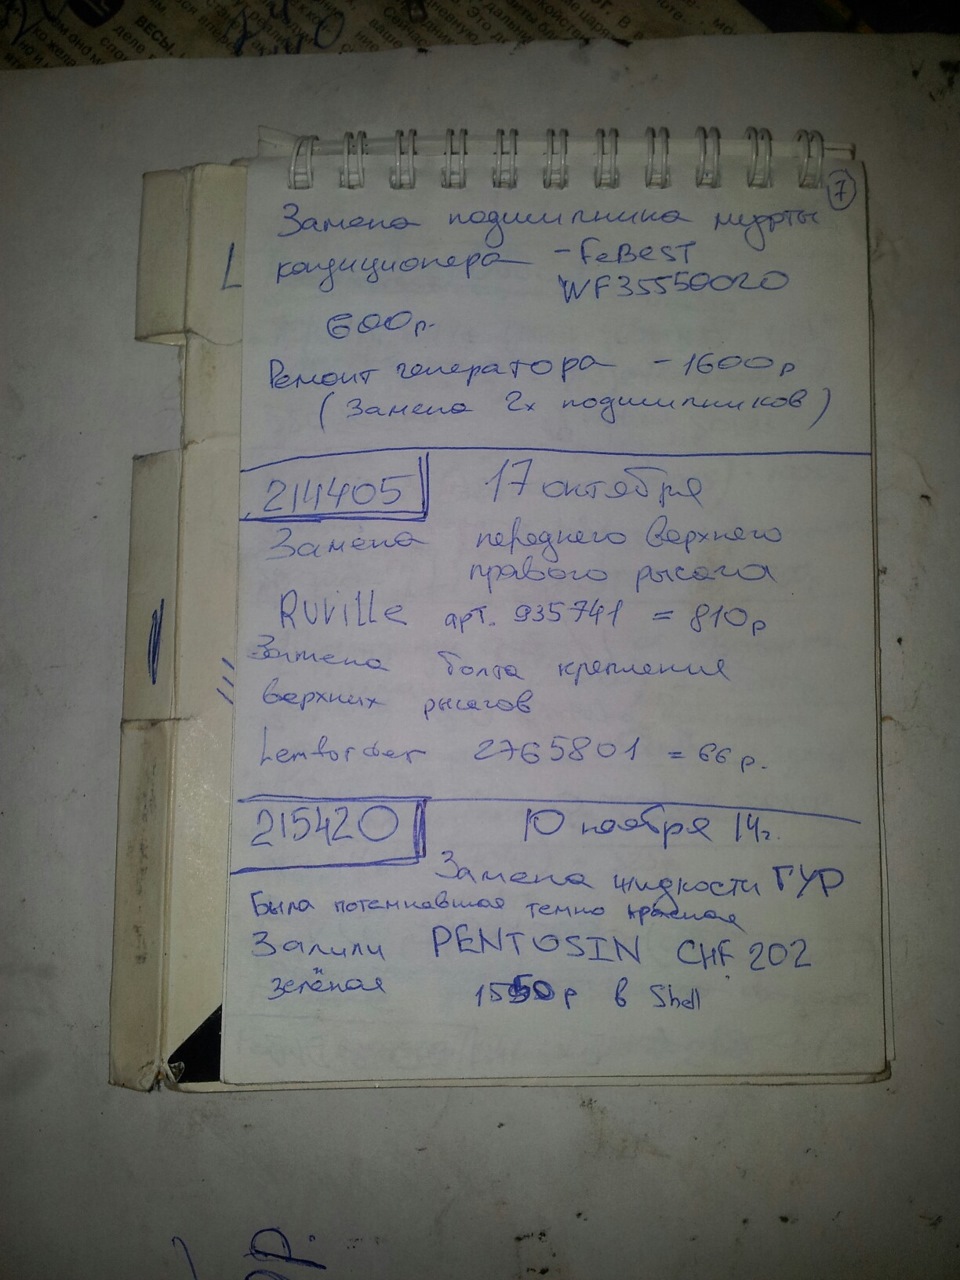 7
Замена подшипника муфты
кондиционера - FeBEST
WF35550020
600р.
Ремонт генератора - 1600р
(Замена 2х подшипников)
214405 17 октября
Замена переднего верхнего
правого рычага
Ruville арт. 935741 = 810р
Замена болта крепления
верхних рычагов
Lemforder 2765801 = 66р.
215420 10 ноября 14г.
Замена жидкости ГУР
Была потемневшая темно красная
Залили PENTOSIN CHF 202
зелёная 1550р в Shell